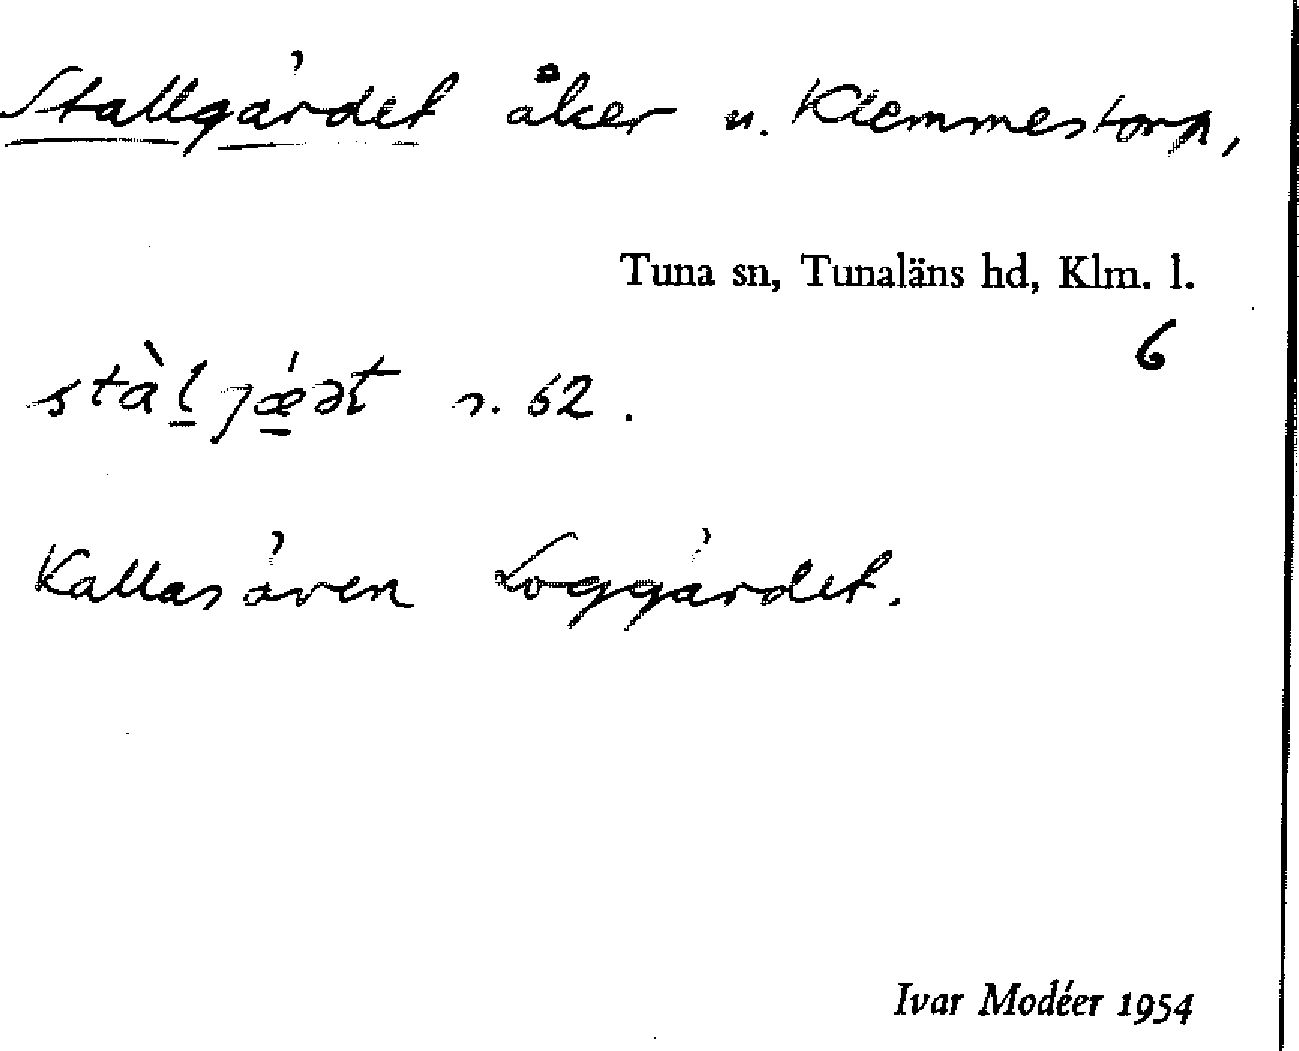 Stallgärdet åker u. Klemmestorp,
Tuna sn, Tunaläns hd, Klm. l.
6
s. 52.
Kallas även Loggärdet.
Ivar Modéer 1954